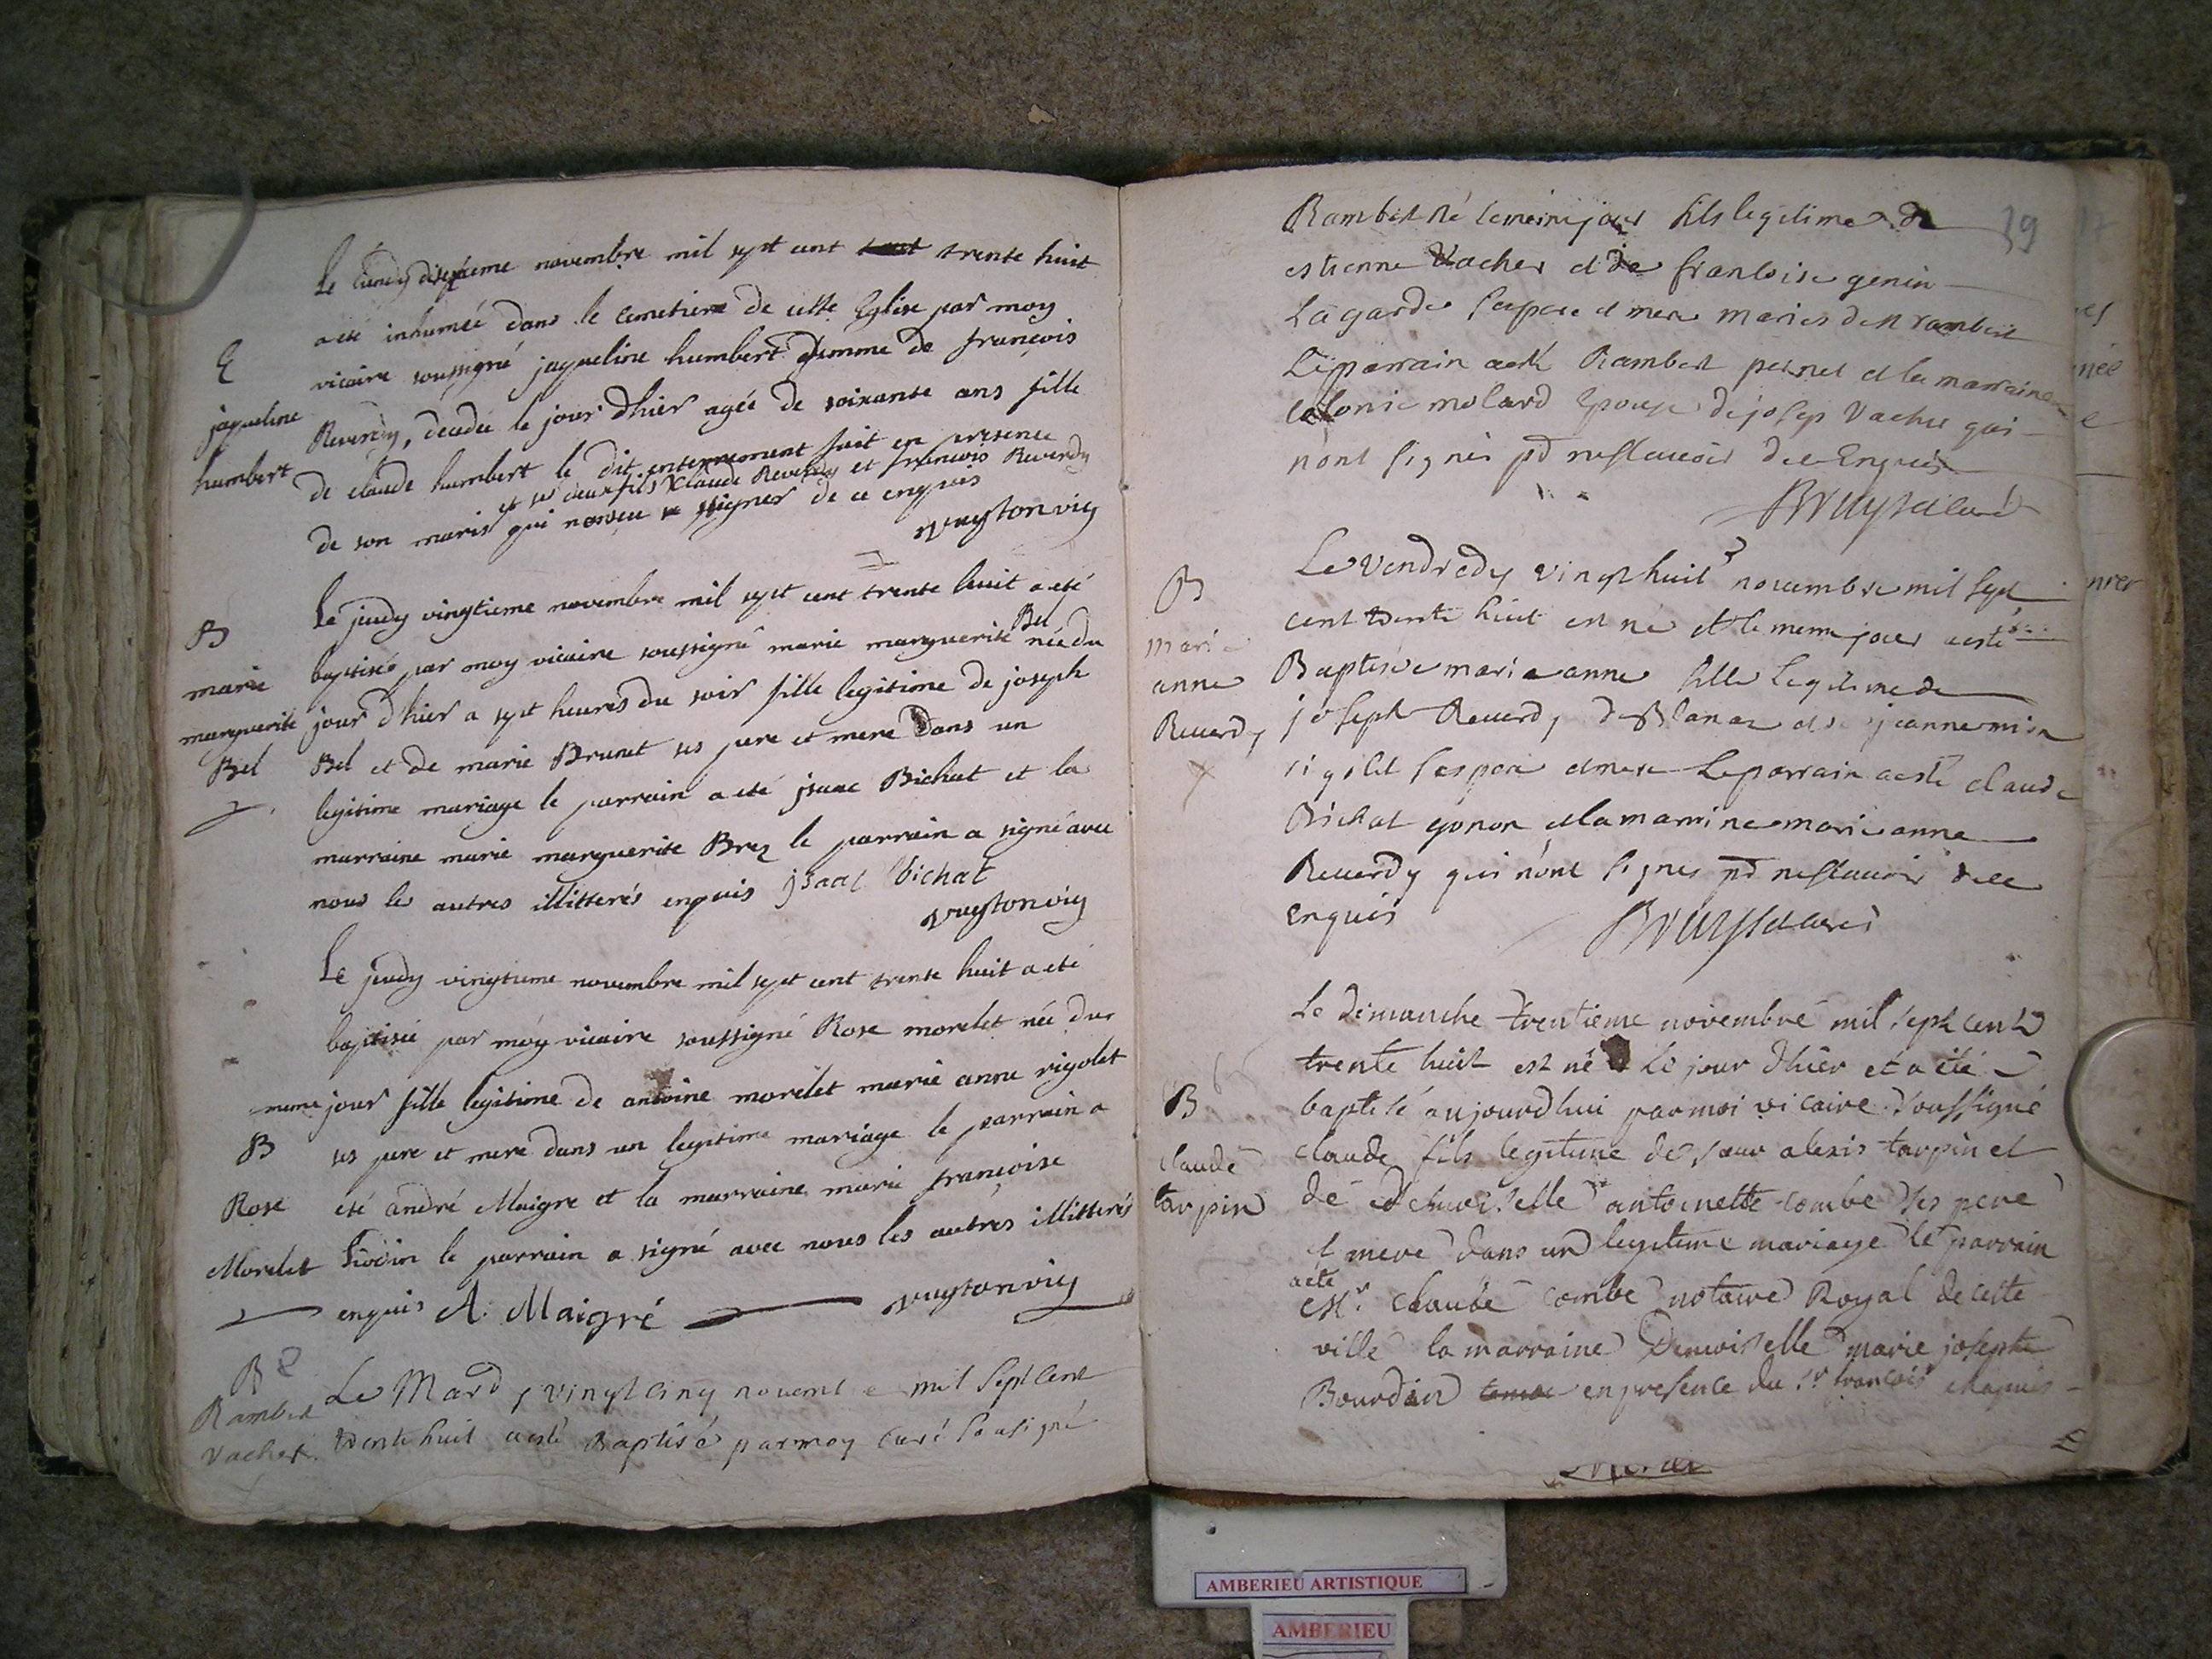 Le lundy novembre mil sept cent trente huit
a eté inhumée dans le cemetiere de cette Eglise par moy
E
vicaire soussigné jaqueline humbert femme de françois
jaqueline
Reverdy, decedée le jour dhier agée de soixante ans fille
humbert
de claude humbert le dit enterrement fait en presence
et ses deux fils Claude Reverdy et francois Reverdy
de son maris qui signer de ce enquis
vuytonvig
Le jeudy vingtieme novembre mil sept cent trente huit a eté
B
Bel
baptisée par moy vicaire soussigné marie marguerite née du
marie
marguerite
jour d'hier a sept heures du soir fille legitime de joseph
Bel
Bel et de marie Brunet ses pere et mere Dans un
legitime mariage le parrain a eté jsaac Bichat et la
marraine marie marguerite Brez le parrain a signé avec
nous les autres illitterés enquis jsaac bichat
vuytonvig
Le jeudy vingtieme novembre mil sept cent trente huit a eté
baptisée par moy vicaire soussigné Rose morelet née du
meme jour fille legitime de antoine morelet marie anne rigolet
B
ses pere et mere dans un legitime mariage le parrain a
Rose
eté andré Maigre et la marraine marie françoise
Morelet
le parrain a signé avec nous les autres illitterés
enquis A. Maigré vuytonvig
B
Rambert
Vacher
Le Mardy vingt cinq novembre mil sept cent
trente huit a esté Baptisé par moy curé sousigné
39
Rambert né le meme jour fils legitime de
estienne Vacher et de francoise genin
Lagarde ses pere et mere maries de st rambert
Le parrain a esté Rambert pernet et la marraine
molard Epouse de josep Vacher qui
nont signés pr ne scavoir de ce Enquis
Le Vendredy vingt huit novembre mil sept
B
cent trente huit est né et le meme jour a esté
marie
anne
Reverdy
Baptisée marie anne fille legitime de
joseph Reverdy de et de jeanne
ses pere et mere Le parrain a esté claude
Bichat gonon et la marrine marie anne
Reverdy qui nont signés pr ne scavoir de ce
enquis
Le dimanche trentieme novembre mil sept cent
trente huit est né le jour dhier et a eté
B
baptisé aujourdhui par moi vicaire soussigné
claude
claude fils legitime de sieur alexis tarpin et
tarpin
de demoiselle antoinette combe ses pere
et mere dans un legitime mariage le parrain
a eté
Mr. claude combe notaire Royal de cette
ville la marraine Demoiselle marie josephte
Bourdin en presence du sr francois chapuis
née
AMBERIEU ARTISTIQUE
AMBERIEU